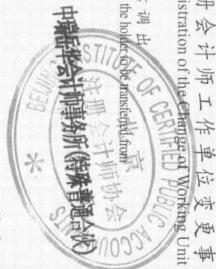 册会计师工作单位变更事
istration of the Change of Working Unit
调出
the holder to be transferred from
事务所(特殊普通合伙)
BEIJING INSTITUTE OF CERTIFIED PUBLIC ACCOUNTS
北京
注册会计师协会